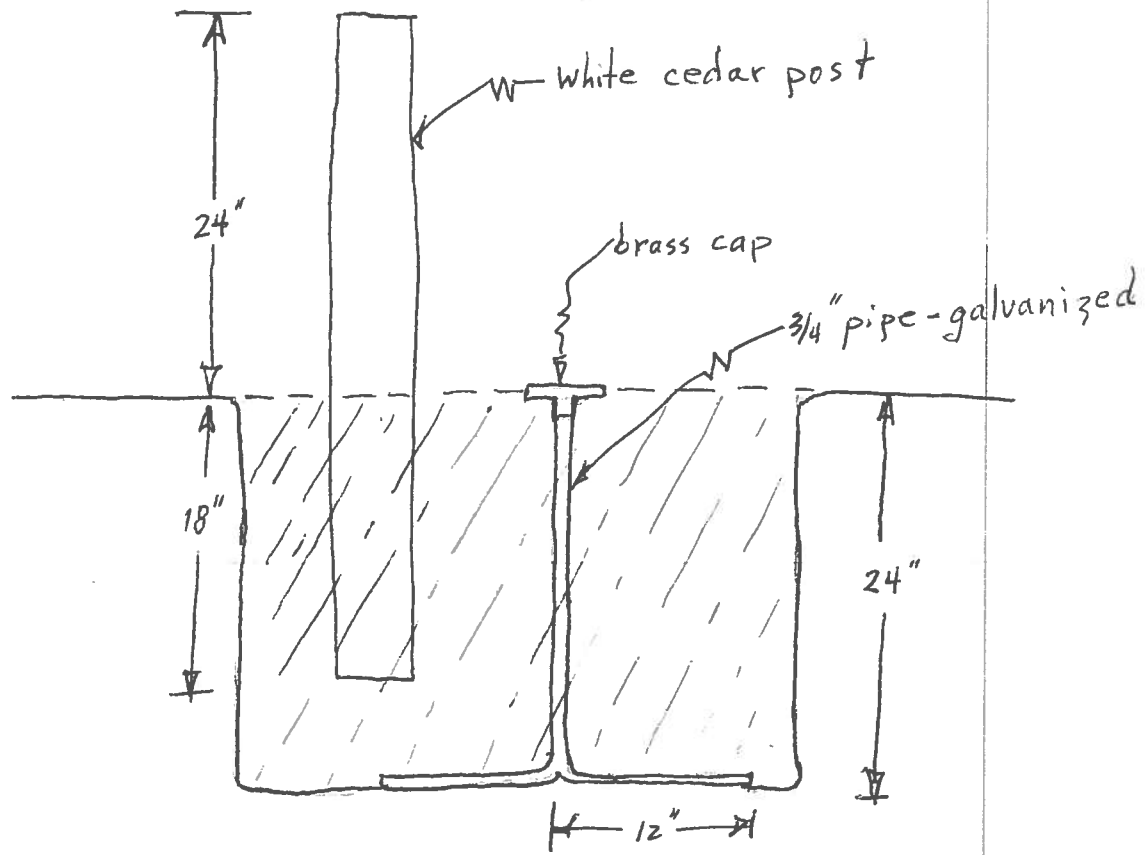 white cedar post
24"
brass cap
3/4" pipe-galvanized
18"
24"
12"